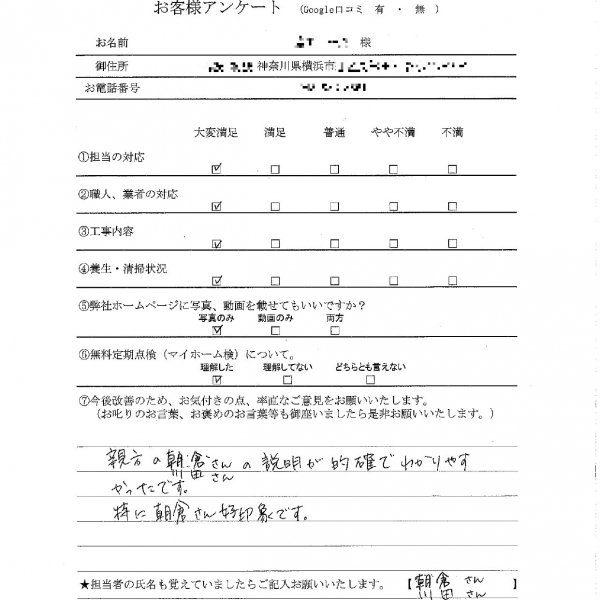 お客様アンケート （Google口コミ 有 ・ 無 ）
お名前 様
御住所 神奈川県横浜市
お電話番号
大変満足 満足 普通 やや不満 不満
①担当の対応
②職人、業者の対応
③工事内容
④養生・清掃状況
⑤弊社ホームページに写真、動画を載せてもいいですか？
写真のみ 動画のみ 両方
⑥無料定期点検（マイホーム検）について。
理解した 理解してない どちらとも言えない
⑦今後改善のため、お気付きの点、率直なご意見をお願いいたします。
（お叱りのお言葉、お褒めのお言葉等も御座いましたら是非お願いいたします。）
親方の朝倉さんの説明が的確でわかりやす
川田さん
かったです。
特に朝倉さん好印象です。
★担当者の氏名も覚えていましたらご記入お願いいたします。 【朝倉さん
川田さん】